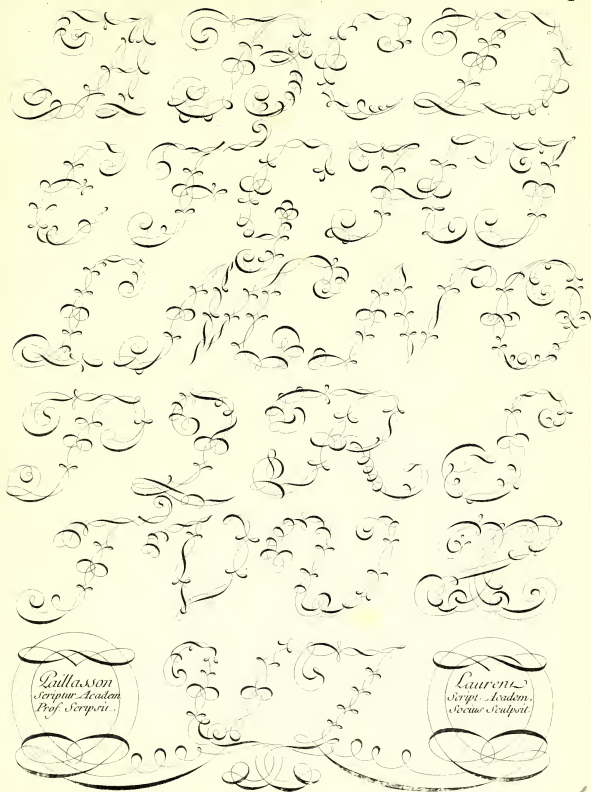 A B C D
E F G H J
L M N O
P Q R S
T V X Z
Paillasson
Scriptur Academ
Prof. Scripsit.
Laurent
Script. Academ.
Socius Sculpsit.